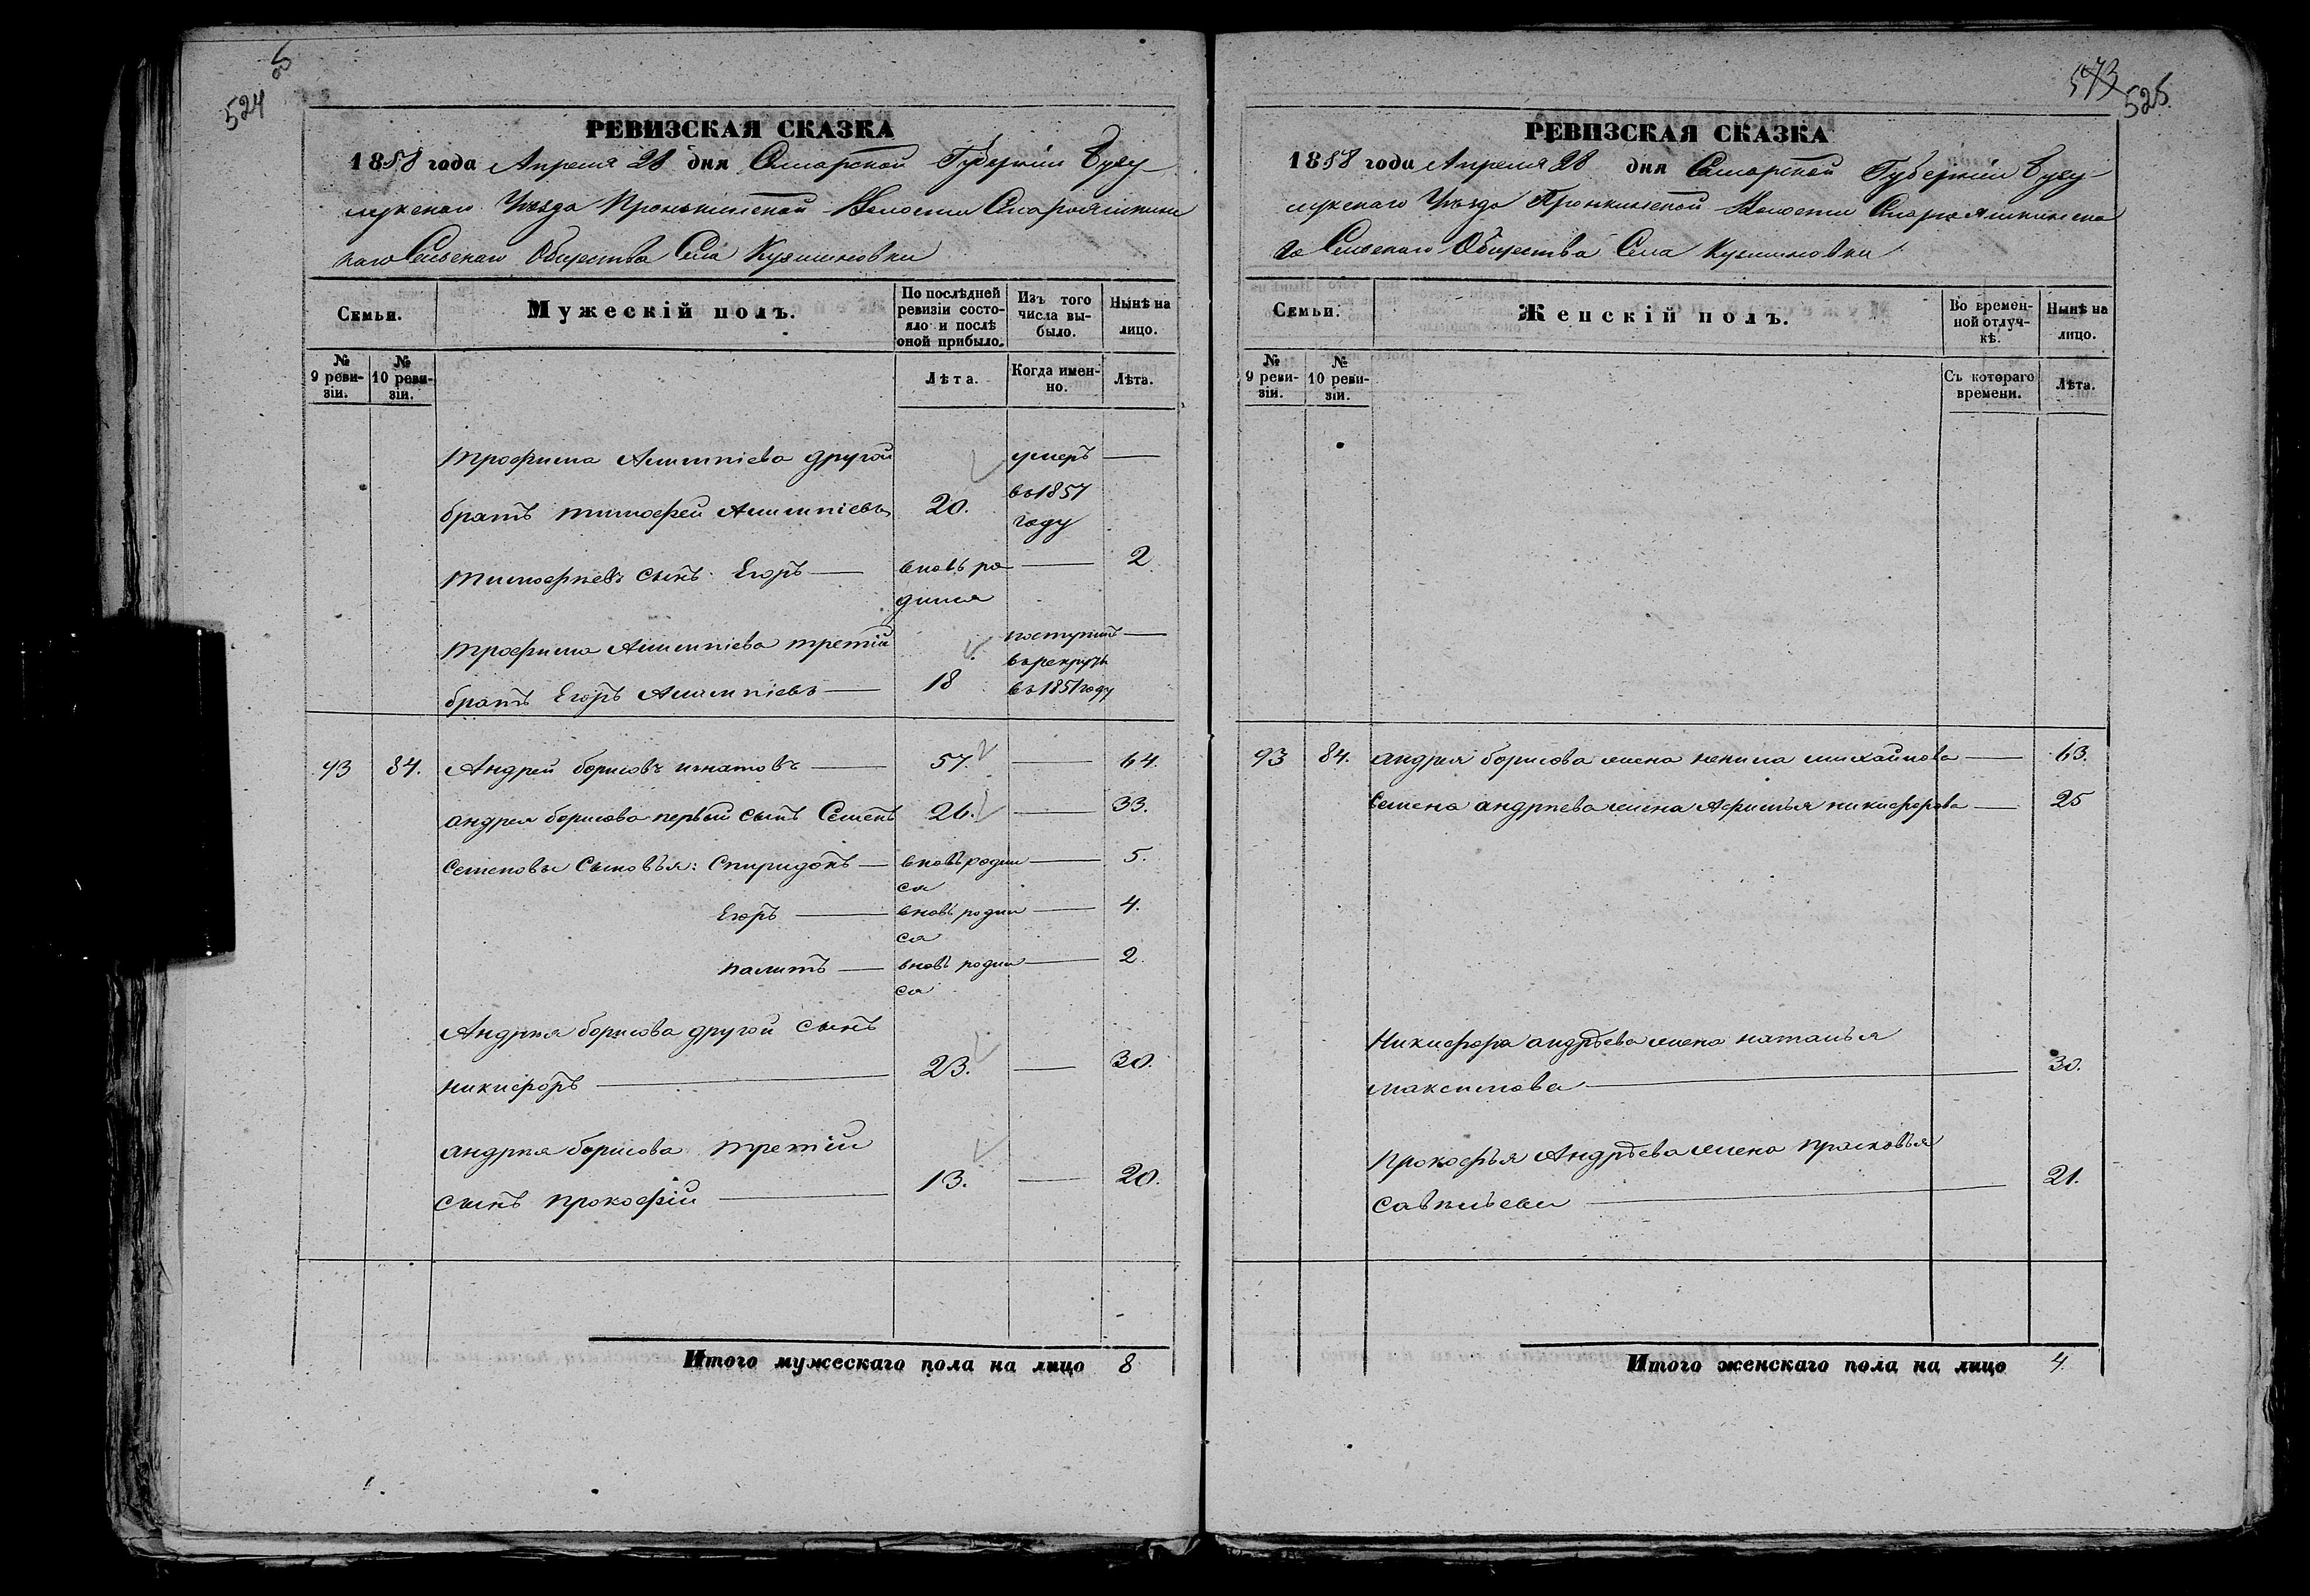 524
РЕВИЗСКАЯ СКАЗКА
1858 года Апреля 28 дня Самарской Губерніи Бузу
лукскаго Уѣзда Пронькинской Волости Староашкинс
каго Сельскаго Общества Села Кузминовки
Семьи.
Мужескій полъ.
По послѣдней
ревизіи состо-
яло и послѣ
оной прибыло.
Изъ того
числа вы-
было.
Нынѣ на
лицо.
№
9 реви-
зіи.
№
10 реви-
зіи.
Лѣта.
Когда имен-
но.
Лѣта.
трофима другой умеръ —
братъ тимофей 20. въ 1857
году
тимофѣевъ сынъ Егоръ — вновь ро — 2
дился
трофима третій поступилъ —
въ рекруты
братъ Егоръ — 18 въ 1851 году
93 84. Андрей борисовъ игнатовъ — 57. — 64.
андрея борисова первый сынъ Семенъ 26. — 33.
Семеновы Сыновья: Спиридонъ — вновь родил — 5.
ся
Егоръ — вновь родил — 4.
ся
— вновь родил — 2.
ся
Андрѣя борисова другой сынъ
никифоръ — 23. — 30.
андрѣя борисова третій
сынъ прокофій — 13. — 20.
Итого мужескаго пола на лицо 8
573 525.
РЕВИЗСКАЯ СКАЗКА
1858 года Апреля 28 дня Самарской Губерніи Бузу
лукскаго Уѣзда Пронкинской Волости Староашкинска
го Сельскаго Общества Села Кузминовки
Семьи.
Женскій полъ.
Во времен-
ной отлуч-
кѣ.
Нынѣ на
лицо.
№
9 реви-
зіи.
№
10 реви-
зіи.
Съ котораго
времени.
Лѣта.
93 84. андрея борисова жена ненила михайлова — 63.
Семена андрѣева жена Афимья никифорова — 25
Никифора андрѣева жена наталья
максимова — 30.
Прокофья Андрѣева жена прасковья
савельева — 21.
Итого женскаго пола на лицо 4.